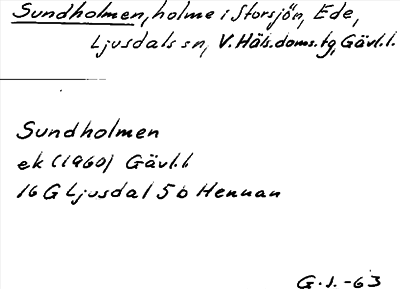 Sundholmen, holme i Storsjön, Ede,
Ljusdals sn, V. Häls. doms. tg, Gävl. l.
Sundholmen
ek (1960) Gävl. l
16 G Ljusdal 5 b Hennan
G. J. -63